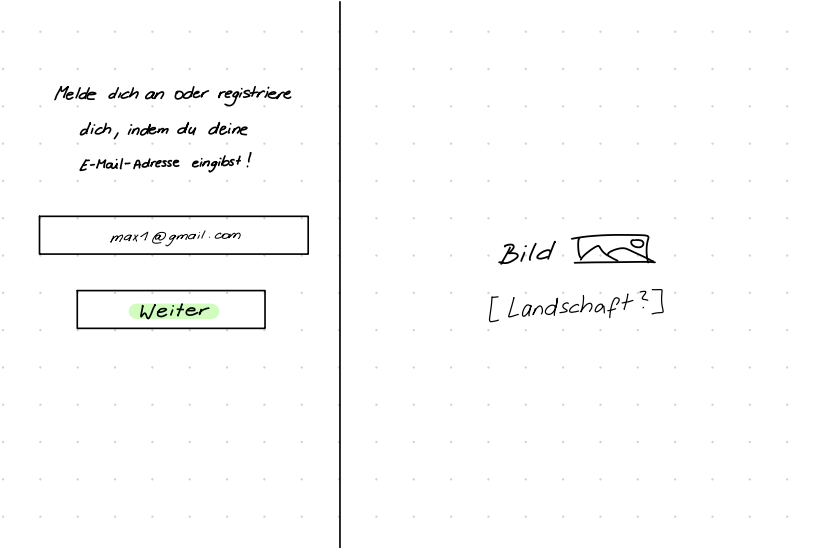 Melde dich an oder registriere
dich, indem du deine
E-Mail-Adresse eingibst!
max1@gmail.com
Weiter
Bild
[Landschaft?]